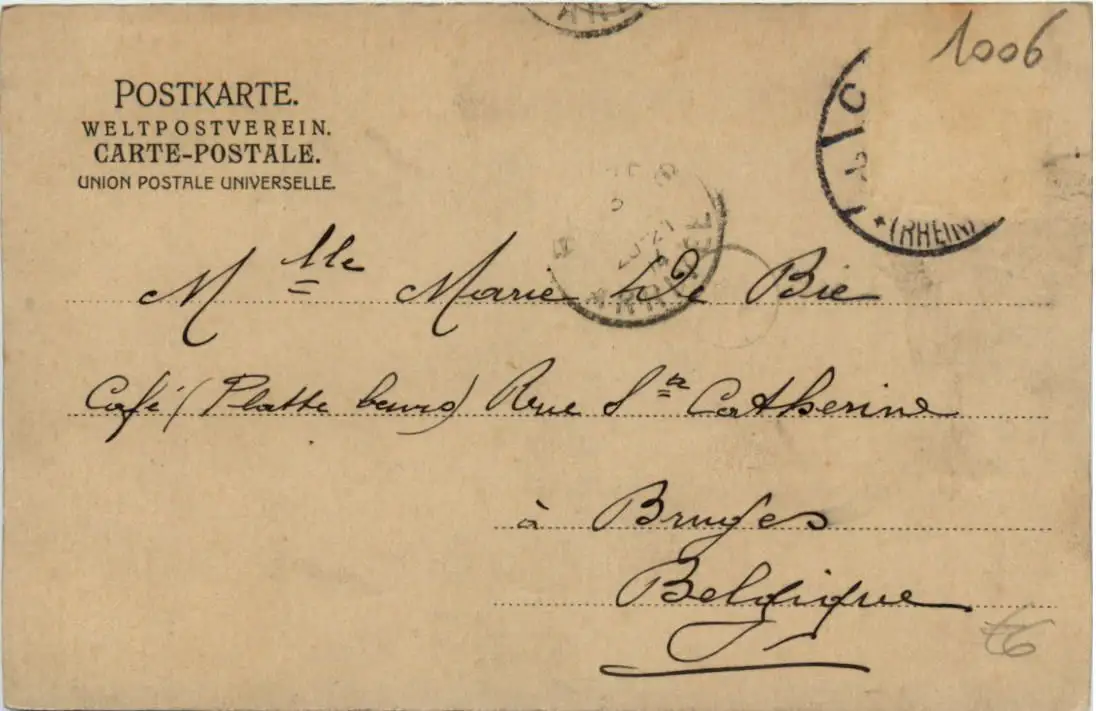 1006
POSTKARTE.
WELTPOSTVEREIN.
CARTE-POSTALE.
UNION POSTALE UNIVERSELLE.
*(RHEIN)
Mlle Marie De Bie
Café (Platte beurs) Rue Ste Catherine
à Bruges
Belgique